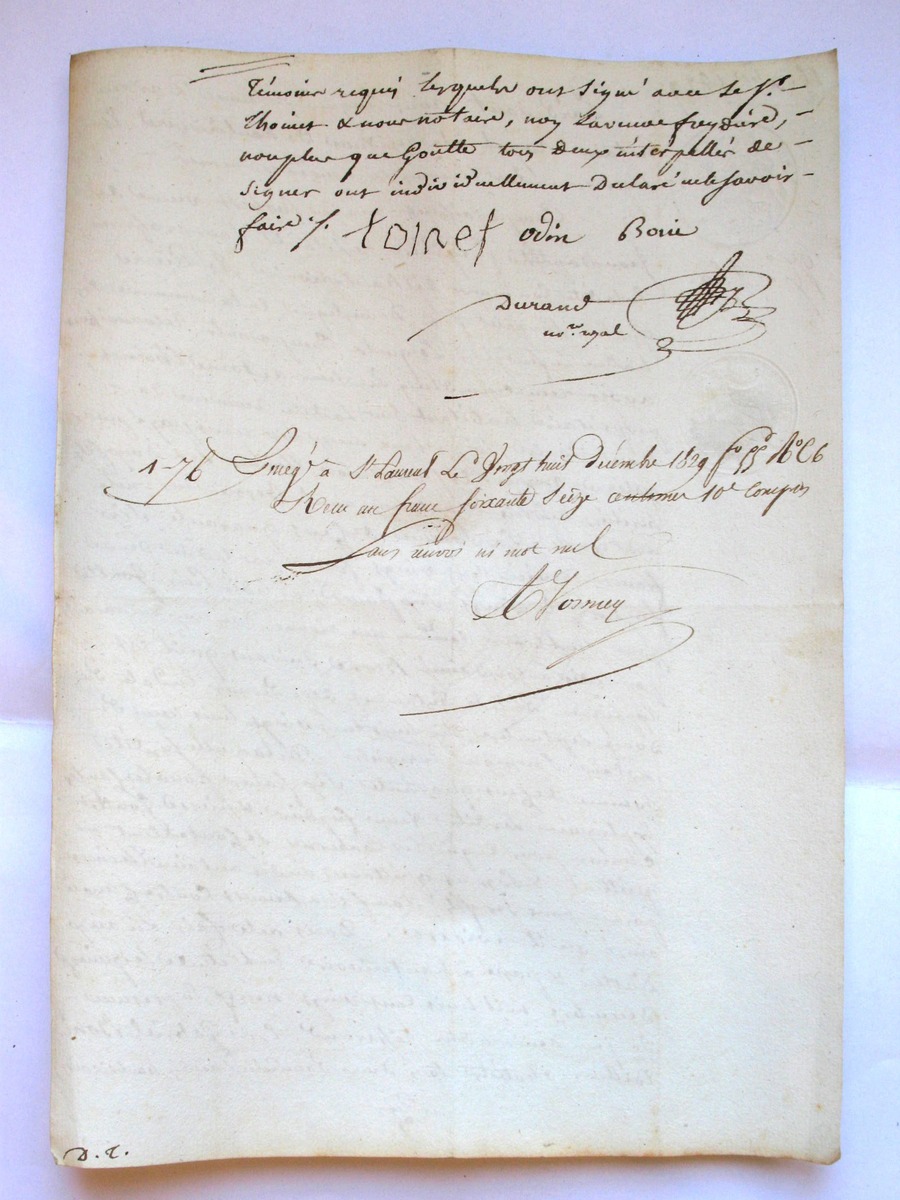 témoins requis lesquels ont signé avec le Sr.
thoinet & nous notaire, non la veuve freydière,
non plus que Goutte tous deux interpellés de
signer ont individuellement déclaré ne le savoir
faire ./.
toinet odin Borie
Durand
nore. royal
1-76 Enregé. à St. Laurent Le Vingt huit décembre 1829 fo. 55 Ro. C 6
Reçu un franc soixante Seize centimes 10e. compris
Sans renvoi ni mot nul
D. T.